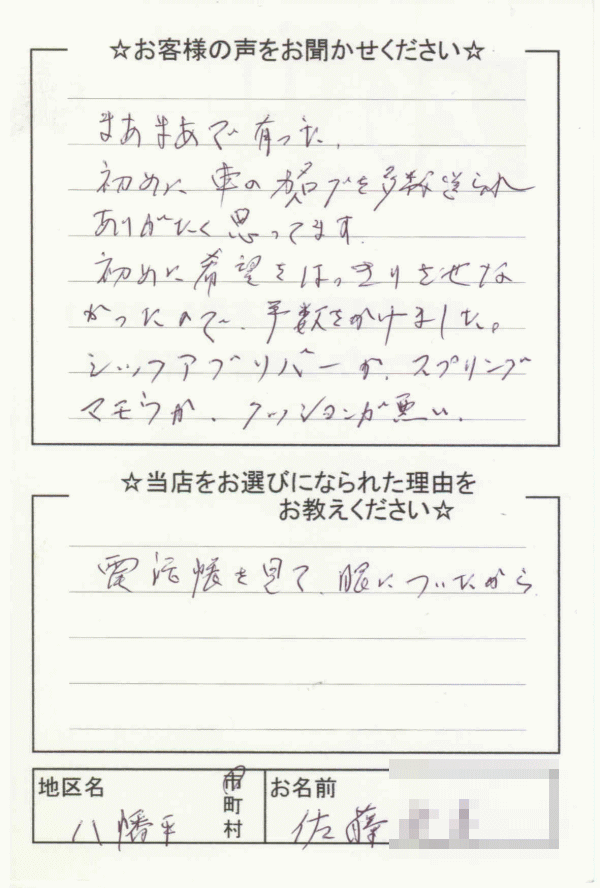 ☆お客様の声をお聞かせください☆
まあまあで有った。
初めに車のカタログを多数送られ
ありがたく思ってます
初めに希望をはっきりさせな
かったので、手数をかけました。
シッフアブソバーか、スプリング
マモウか、クッションが悪い、
☆当店をお選びになられた理由を
お教えください☆
電話帳を見て、眼についたから
地区名
八幡平
市
町
村
お名前
佐藤